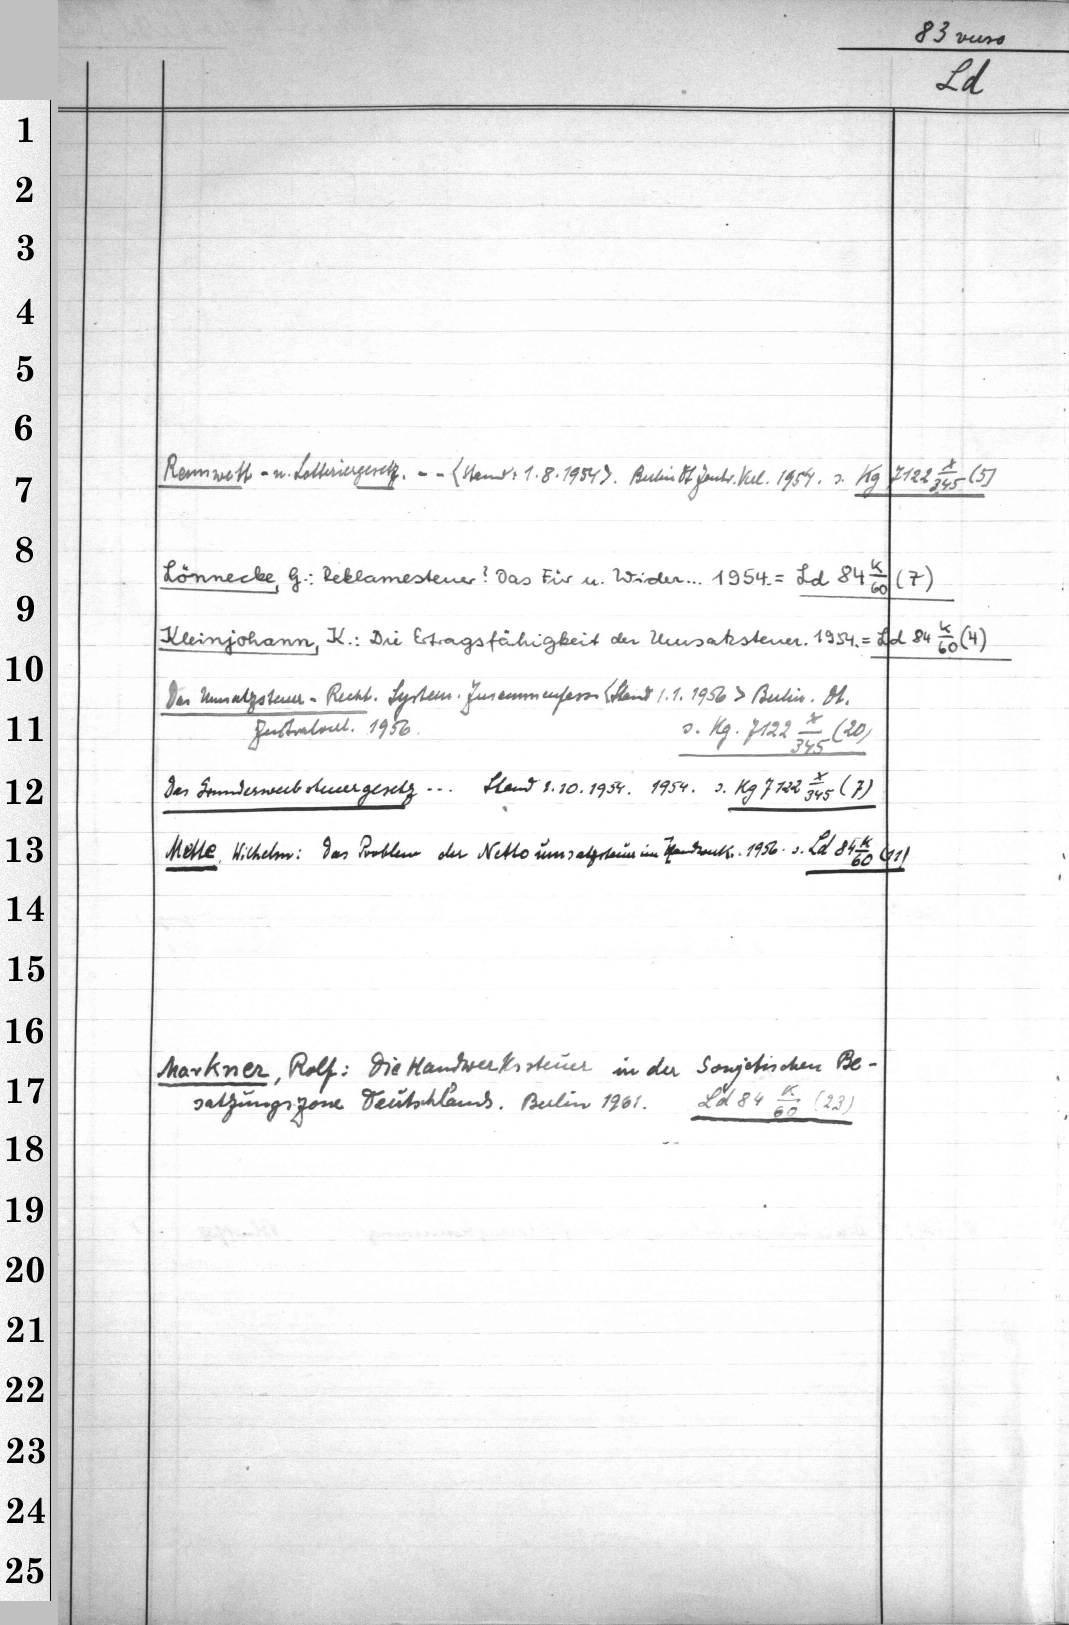 83 verso
Ld
1
2
3
4
5
6
7
Rennwett - u. Lotteriegesetz. - - <Stand: 1.8.1954>. Berlin Dt. Zentr. Verl. 1954. s. Kg 7122 x/345 (5)
8
Lönnecke, G.: Reklamesteuer? Das Für u. Wider... 1954. = Ld 84 K/60 (7)
9
Kleinjohann, K.: Die Ertragsfähigkeit der Umsatzsteuer. 1954. = Ld 84 K/60 (4)
10
Das Umsatzsteuer - Recht. System. Zusammenfass. <Stand 1.1.1956> Berlin. Dt.
11
Zentralverl. 1956. s. Kg. 7122 x/345 (20)
12
Das Grunderwerbsteuergesetz ... Stand 1.10.1954. 1954. s. Kg 7122 x/345 (7)
13
Mette, Wilhelm: Das Problem der Nettoumsatzsteuer im Handwerk. 1956. s. Ld 84 K/60 (11)
14
15
16
Markner, Rolf: Die Handwerkssteuer in der Sowjetischen Be-
17
satzungszone Deutschlands. Berlin 1961. Ld 84 K/60 (23)
18
19
20
21
22
23
24
25